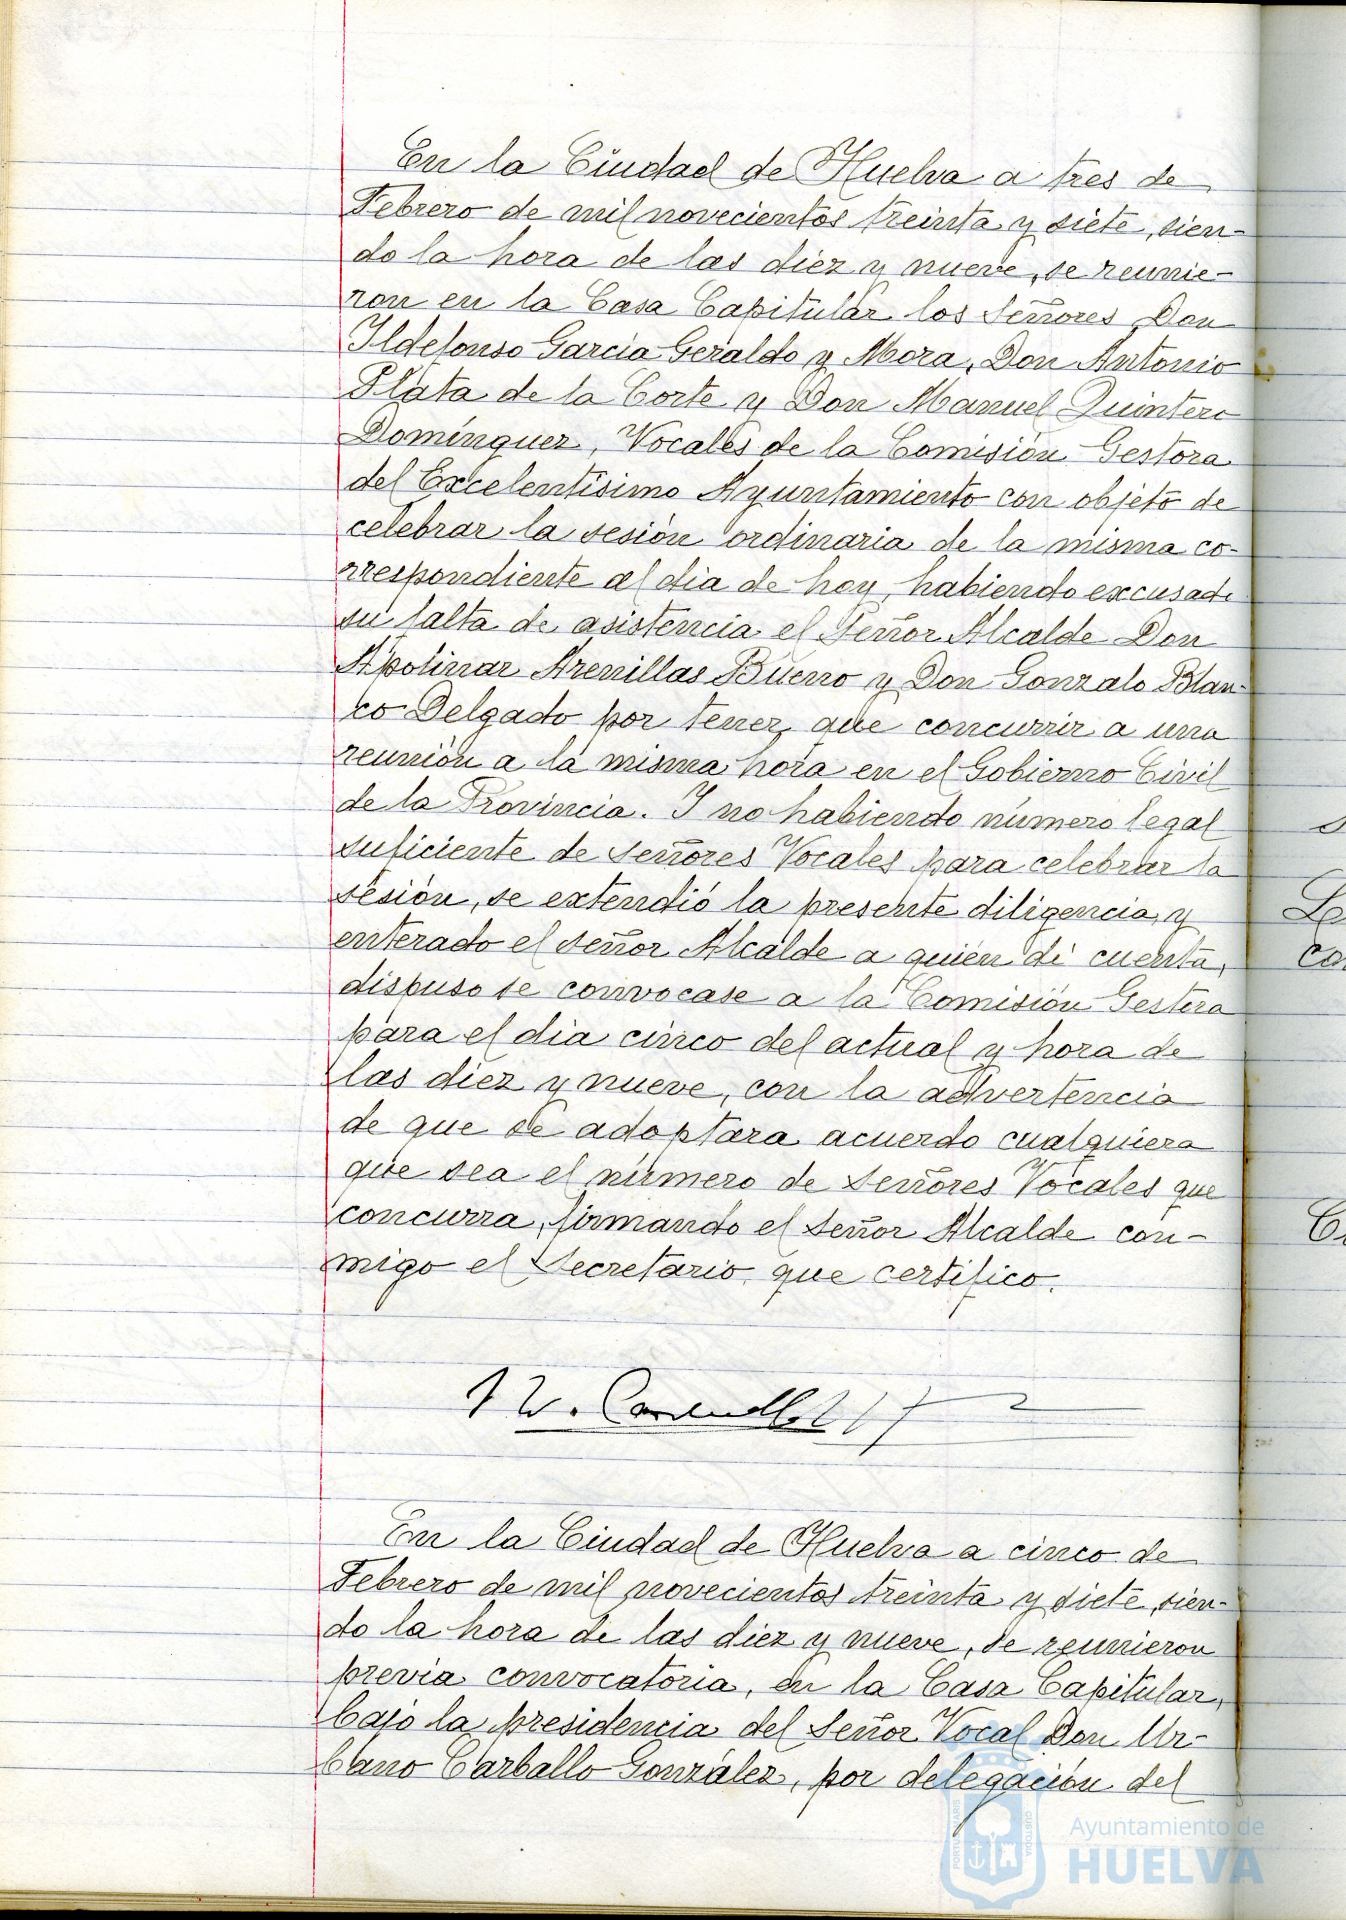 En la Ciudad de Huelva a tres de
Febrero de mil novecientos treinta y siete, sien-
do la hora de las diez y nueve, se reunie-
ron en la Casa Capitular los Señores Don
Ildefonso García Geraldo y Mora, Don Antonio
Plata de la Corte y Don Manuel Quintero
Domínguez, Vocales de la Comisión Gestora
del Excelentísimo Ayuntamiento con objeto de
celebrar la sesión ordinaria de la misma co-
rrespondiente al dia de hoy, habiendo excusado
su falta de asistencia el Señor Alcalde Don
Apolinar Arenillas Bueno y Don Gonzalo Blan-
co Delgado por tener que concurrir a una
reunión a la misma hora en el Gobierno Civil
de la Provincia. Y no habiendo número legal
suficiente de señores Vocales para celebrar la
sesión, se extendió la presente diligencia, y
enterado el señor Alcalde a quién dí cuenta,
dispuso se convocase a la Comisión Gestora
para el dia cinco del actual y hora de
las diez y nueve, con la advertencia
de que se adoptara acuerdo cualquiera
que sea el número de Señores Vocales que
concurra, firmando el señor Alcalde con-
migo el Secretario, que certifico.
En la Ciudad de Huelva a cinco de
Febrero de mil novecientos treinta y siete, sien-
do la hora de las diez y nueve, se reunieron
previa convocatoria, en la Casa Capitular,
bajo la presidencia del Señor Vocal Don Ur-
bano Carballo González, por delegación del
Ayuntamiento de
HUELVA